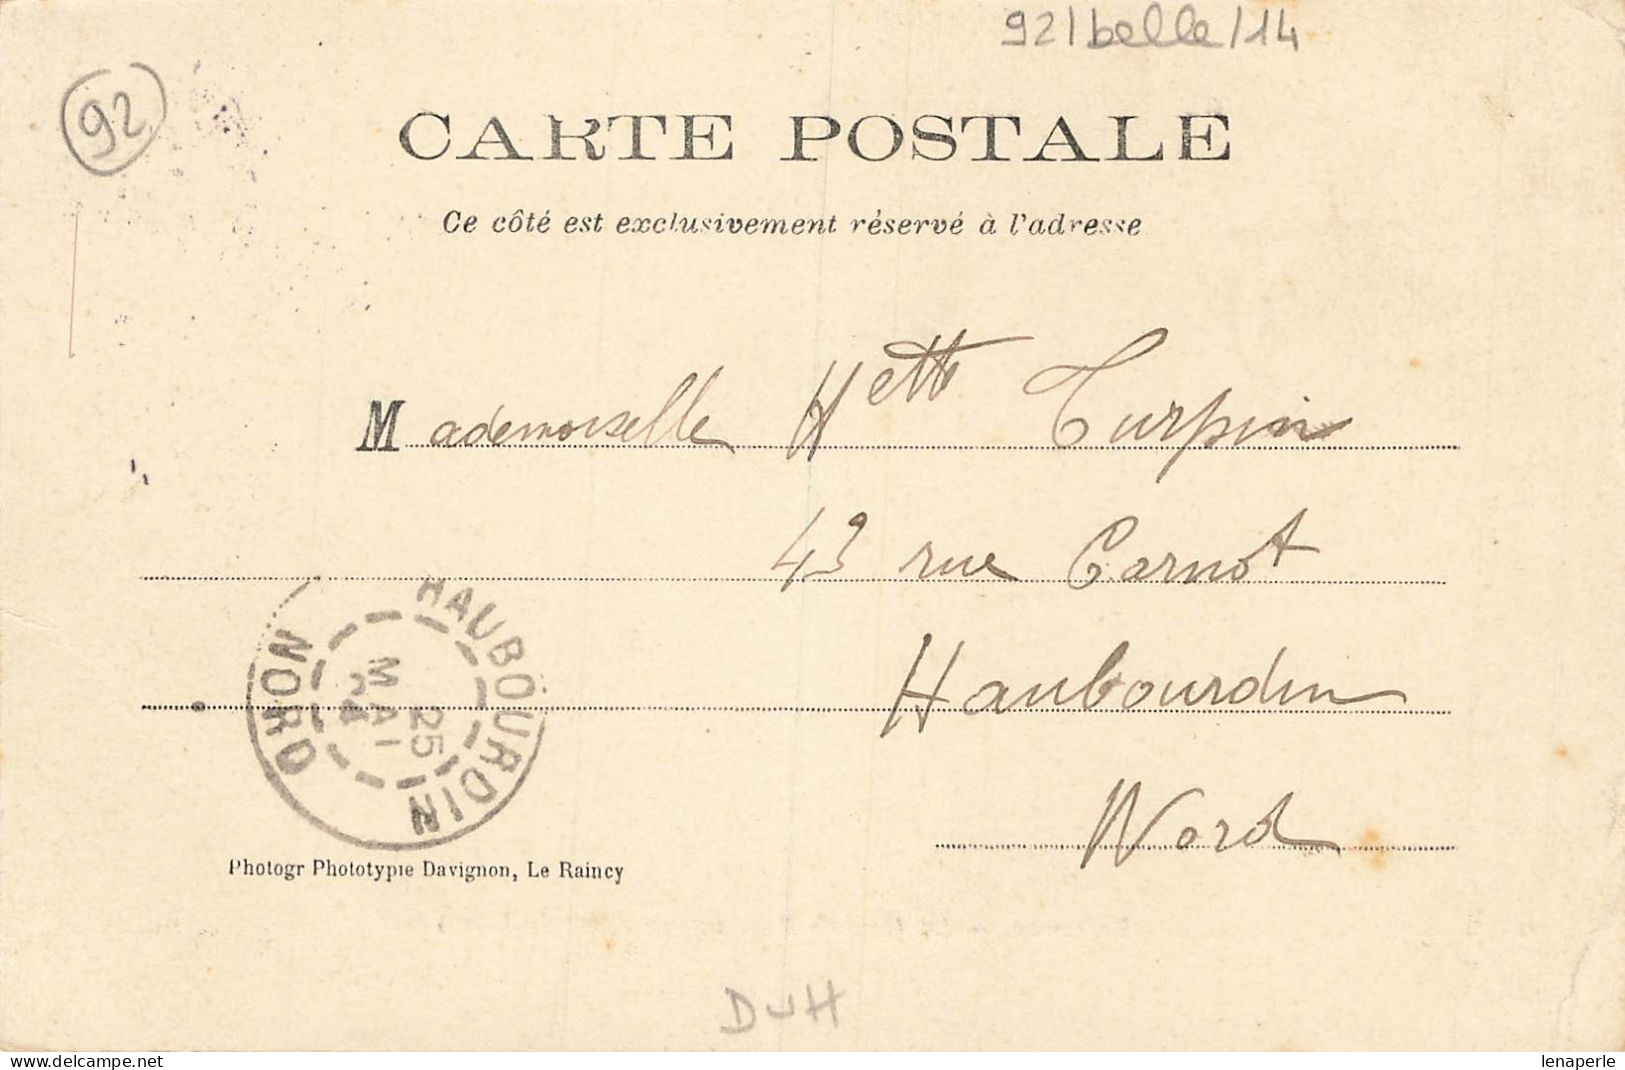 92/belle/14
92
CARTE POSTALE
Ce côté est exclusivement réservé à l'adresse
Mademoiselle Hette Turpin
43 rue Carnot
Haubourdin
Nord
HAUBOURDIN
NORD
25
MAI
Photogr Phototypie Davignon, Le Raincy
https://www.delcampe.net
lenaperle